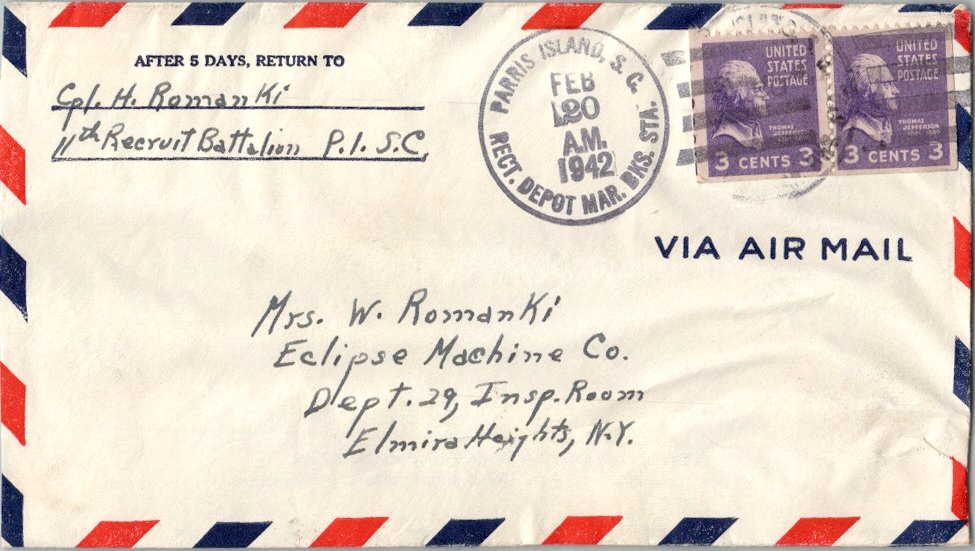 AFTER 5 DAYS, RETURN TO
Cpl. H. Romanki
11th Recruit Battalion P.I. S.C.
PARRIS ISLAND, S. C.
FEB
20
A.M.
1942
RECT. DEPOT MAR. BKS. STA.
UNITED
STATES
POSTAGE
THOMAS
JEFFERSON
3 CENTS 3
UNITED
STATES
POSTAGE
THOMAS
JEFFERSON
3 CENTS 3
VIA AIR MAIL
Mrs. W. Romanki
Eclipse Machine Co.
Dept. 29, Insp. Room
Elmira Heights, N.Y.